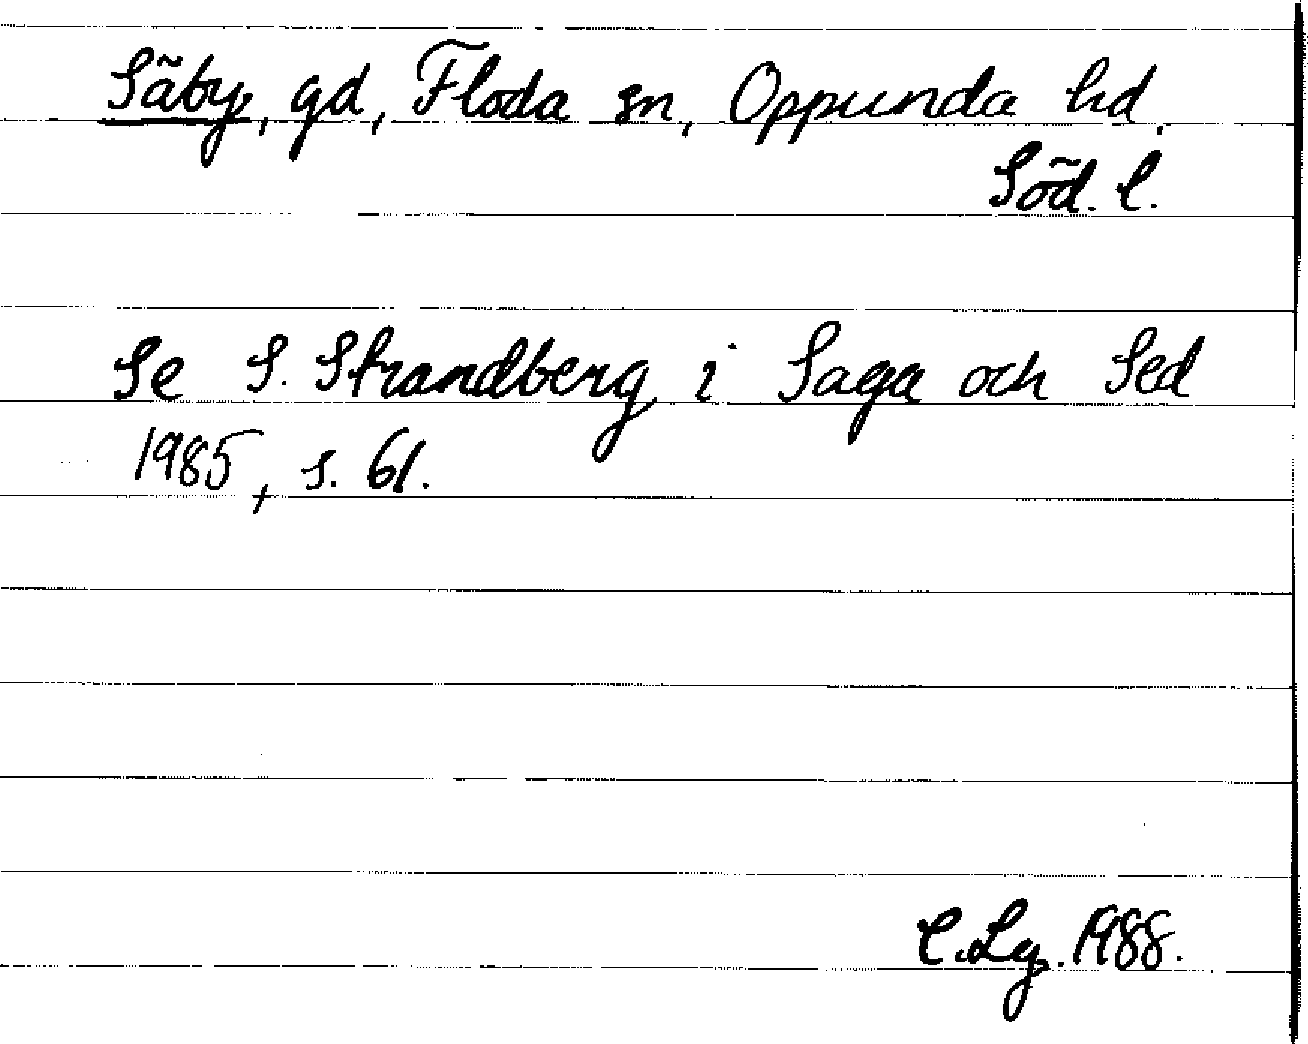 Säby, gd, Floda sn, Oppunda hd.
Söd. l.
Se S. Strandberg i Saga och Sed
1985, s. 61.
C. Lg. 1988.